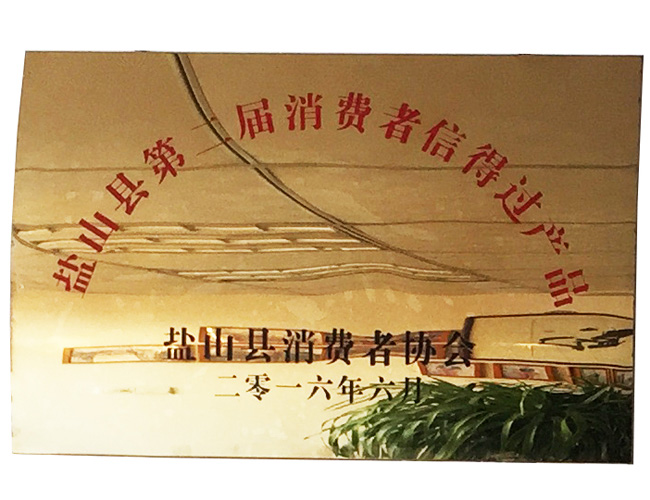 盐山县第二届消费者信得过产品
盐山县消费者协会
二零一六年六月